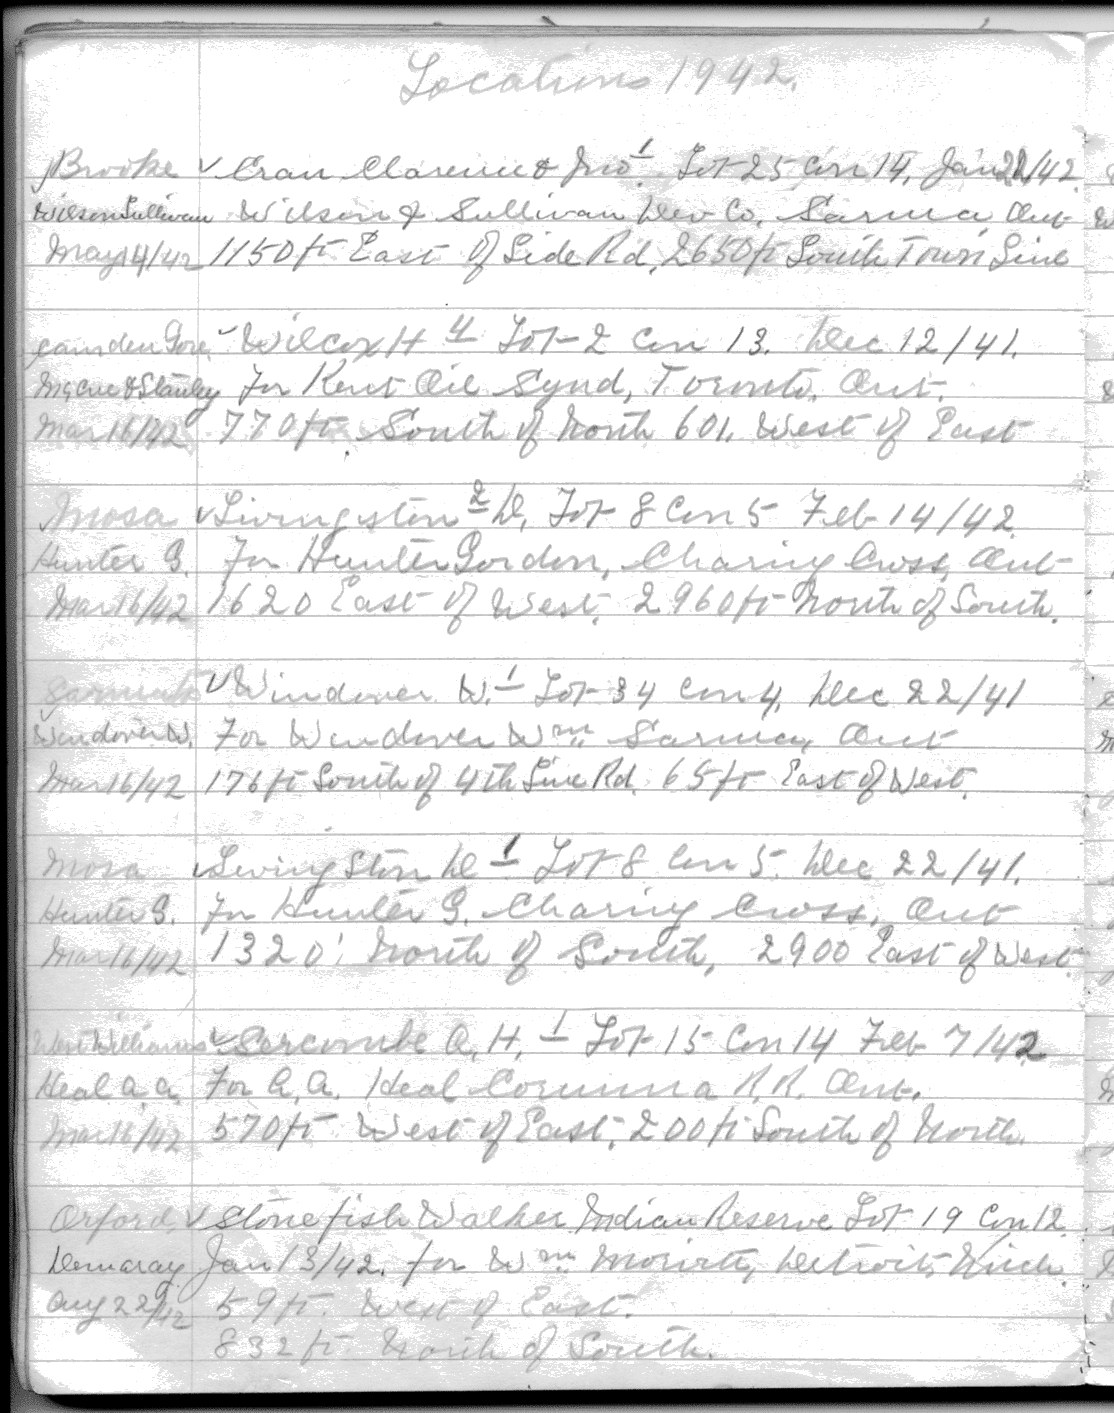 Locations 1942.
Brooke ✓ Cran Clarence & Jno 1 Lot 25 Con 14, Jan 21/42
Wilson Sullivan Wilson & Sullivan Dev Co, Sarnia, Ont
May 14/42 1150 ft East of Side Rd, 2650 ft South Town Line
Camden Gore ✓ Wilcox H 4 Lot 2 Con 13. Dec 12/41.
McCue & Stanley For Kent Oil Synd, Toronto, Ont.
Mar 16/42 770 ft South of North 601. West of East
Mosa ✓ Livingston 2 D, Lot 8 Con 5 Feb 14/42
Hunter G. For Hunter Gordon, Charing Cross, Ont
Mar 16/42 1620 East of West, 2960 ft North of South.
Sarnia ✓ Windover W. 1 Lot 34 Con 4, Dec 22/41
Windover W. For Windover Wm Sarnia, Ont
Mar 16/42 176 ft South of 4th Line Rd, 65 ft East of West.
Mosa ✓ Livingston D 1 Lot 8 Con 5. Dec 22/41.
Hunter G. For Hunter G. Charing Cross, Ont
Mar 16/42 1320' North of South, 2900 East of West
West Williams ✓ Sercombe A. H. 1 Lot 15 Con 14 Feb 7/42
Heal A. A. For A. A. Heal Corunna R.R. Ont.
Mar 16/42 570 ft West of East, 200 ft South of North.
Orford, ✓ Stonefish Walker Indian Reserve Lot 19 Con 12
Demaray Jan 13/42. for Wm Detroit, Mich.
Aug 22/42 59 ft. West of East.
832 ft North of South.